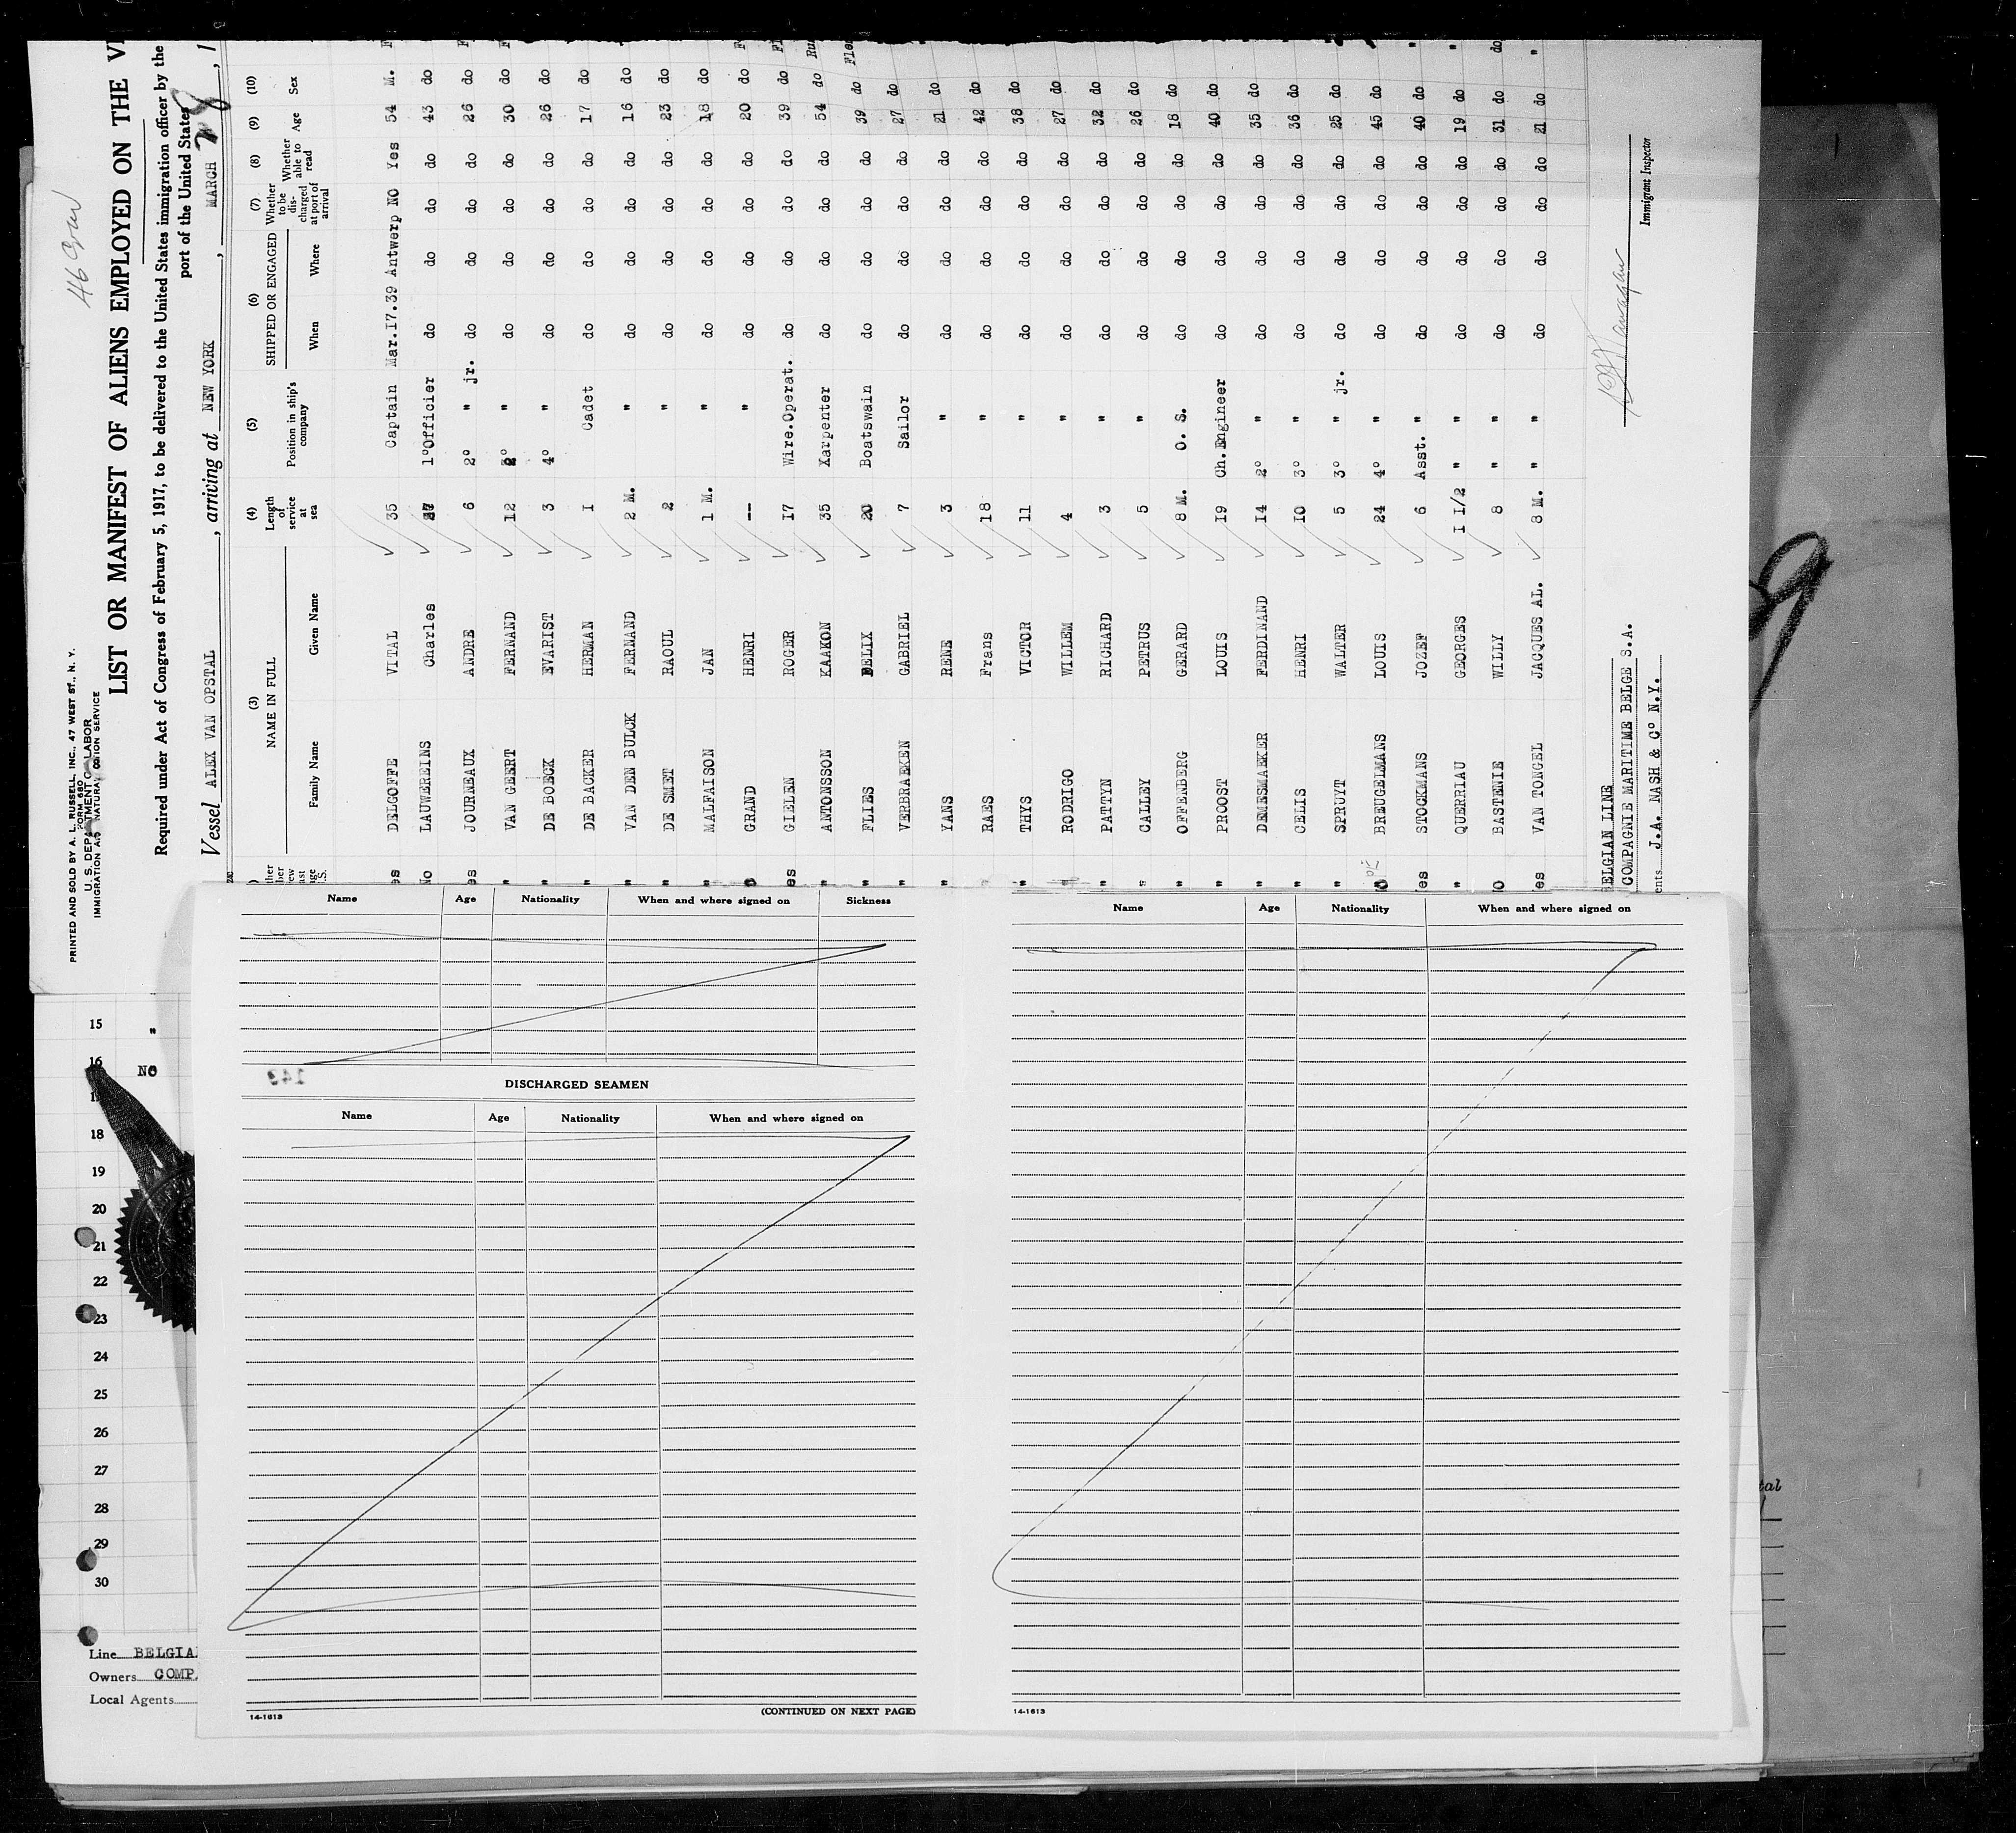 46 Crew
PRINTED AND SOLD BY A. L. RUSSELL, INC., 47 WEST ST., N. Y.
FORM 680
U. S. DEPARTMENT OF LABOR
IMMIGRATION AND NATURALIZATION SERVICE
LIST OR MANIFEST OF ALIENS EMPLOYED ON THE
Required under Act of Congress of February 5, 1917, to be delivered to the United States immigration officer by the
port of the United States
Vessel ALEX VAN OPSTAL, arriving at NEW YORK, MARCH
(3) (4) (5) (6) (7) (8) (9) (10)
NAME IN FULL Length of service at sea Position in ship's company SHIPPED OR ENGAGED Whether to be discharged at port of arrival Whether able to read Age Sex
Family Name Given Name When Where
DELGOFFE VITAL 35 Captain Mar.17.39 Antwerp NO Yes 54 M.
LAUWEREINS Charles 1ºOfficier do do do do 43 do
JOURNEAUX ANDRE 6 2º " jr. do do do do 26 do
VAN GEERT FERNAND 12 " do do do do 30 do
DE BOECK EVARIST 3 4º " do do do do 26 do
DE BACKER HERMAN I Cadet do do do do 17 do
VAN DEN BULCK FERNAND 2 M. " do do do do 16 do
DE SMET RAOUL 2 " do do do do 23 do
MALFAISON JAN 1 M. " do do do do 18 do
GRAND HENRI -- " do do do do 20 do
GIELEN ROGER I7 Wire.Operat. do do do do 39 do
ANTONSSON KAAKON 35 Karpenter do do do do 54 do
FLIES DELIX 20 Boatswain do do do do 39 do
VERBRAEKEN GABRIEL 7 Sailor do do do do 27 do
YANS RENE 3 " do do do do 21 do
RAES Frans 18 " do do do do 42 do
THYS VICTOR 11 " do do do do 38 do
RODRIGO WILLEM 4 " do do do do 27 do
PATTYN RICHARD 3 " do do do do 32 do
CALLEY PETRUS 5 " do do do do 26 do
OFFENBERG GERARD 8 M. O. S. do do do do 18 do
PROOST LOUIS 19 Ch.Engineer do do do do 40 do
DEMESMAEKER FERDINAND 14 2º " do do do do 35 do
CELIS HENRI 10 3º " do do do do 36 do
SPRUYT WALTER 5 3º " jr. do do do do 25 do
BREUGELMANS LOUIS 24 4º " do do do do 45 do
STOCKMANS JOZEF 6 Asst. " do do do do 40 do "
QUERRIAU GEORGES I I/2 " " do do do do 19 do "
BASTENIE WILLY 8 " " do do do do 31 do do
VAN TONGEL JACQUES AL. 8 M. " " do do do do 21 do "
BELGIAN LINE
COMPAGNIE MARITIME BELGE S.A.
J.A. NASH & Cº N.Y.
Immigrant Inspector
Name Age Nationality When and where signed on Sickness
149
DISCHARGED SEAMEN
Name Age Nationality When and where signed on
(CONTINUED ON NEXT PAGE)
14-1613
Name Age Nationality When and where signed on
14-1613
15 "
16 NO
18
19
20
21
22
23
24
25
26
27
28
29
30
Line BELGIA
Owners COMP.
Local Agents